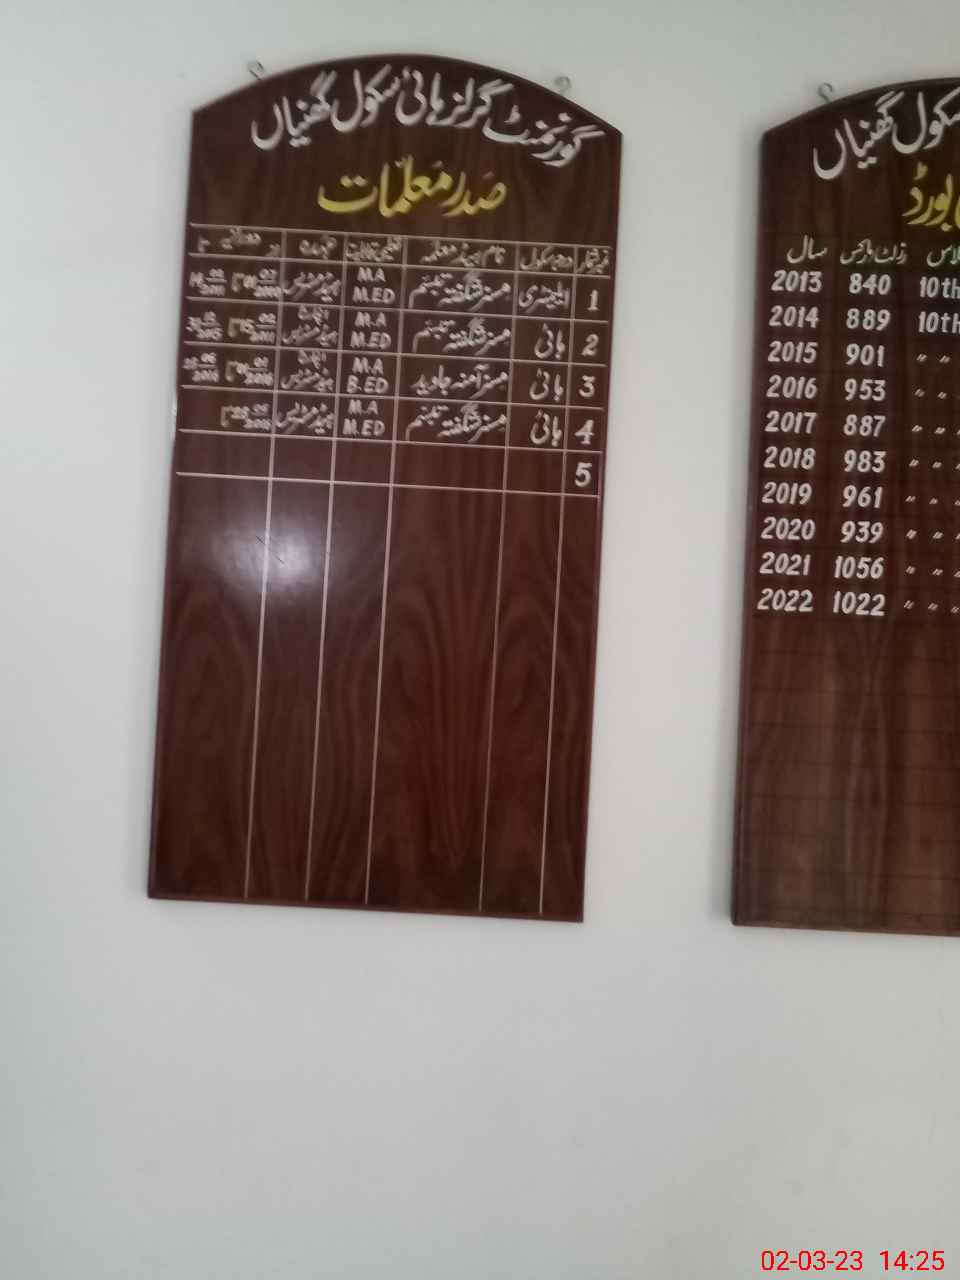 گورنمنٹ گرلز ہائی سکول گھنیاں
صدر معلمات
نمبر شمار درجہ سکول نام ہیڈ معلمہ تعلیمی قابلیت عہدہ
1 ایلیمنٹری مسز شگفتہ تبسم M.A M.ED ہیڈ مسٹریس
2 ہائی مسز شگفتہ تبسم M.A M.ED ہیڈ مسٹریس
3 ہائی مسز آمنہ جاوید M.A B.ED ہیڈ مسٹریس
4 ہائی مسز شگفتہ تبسم M.A M.ED ہیڈ مسٹریس
5
سکول گھنیاں
بورڈ
سال رزلٹ مارکس کلاس
2013 840 10th
2014 889 10th
2015 901 〃 〃
2016 953 〃 〃
2017 887 〃 〃
2018 983 〃 〃
2019 961 〃 〃 〃
2020 939 〃 〃 〃
2021 1056 〃 〃 〃
2022 1022 〃 〃 〃
02-03-23 14:25